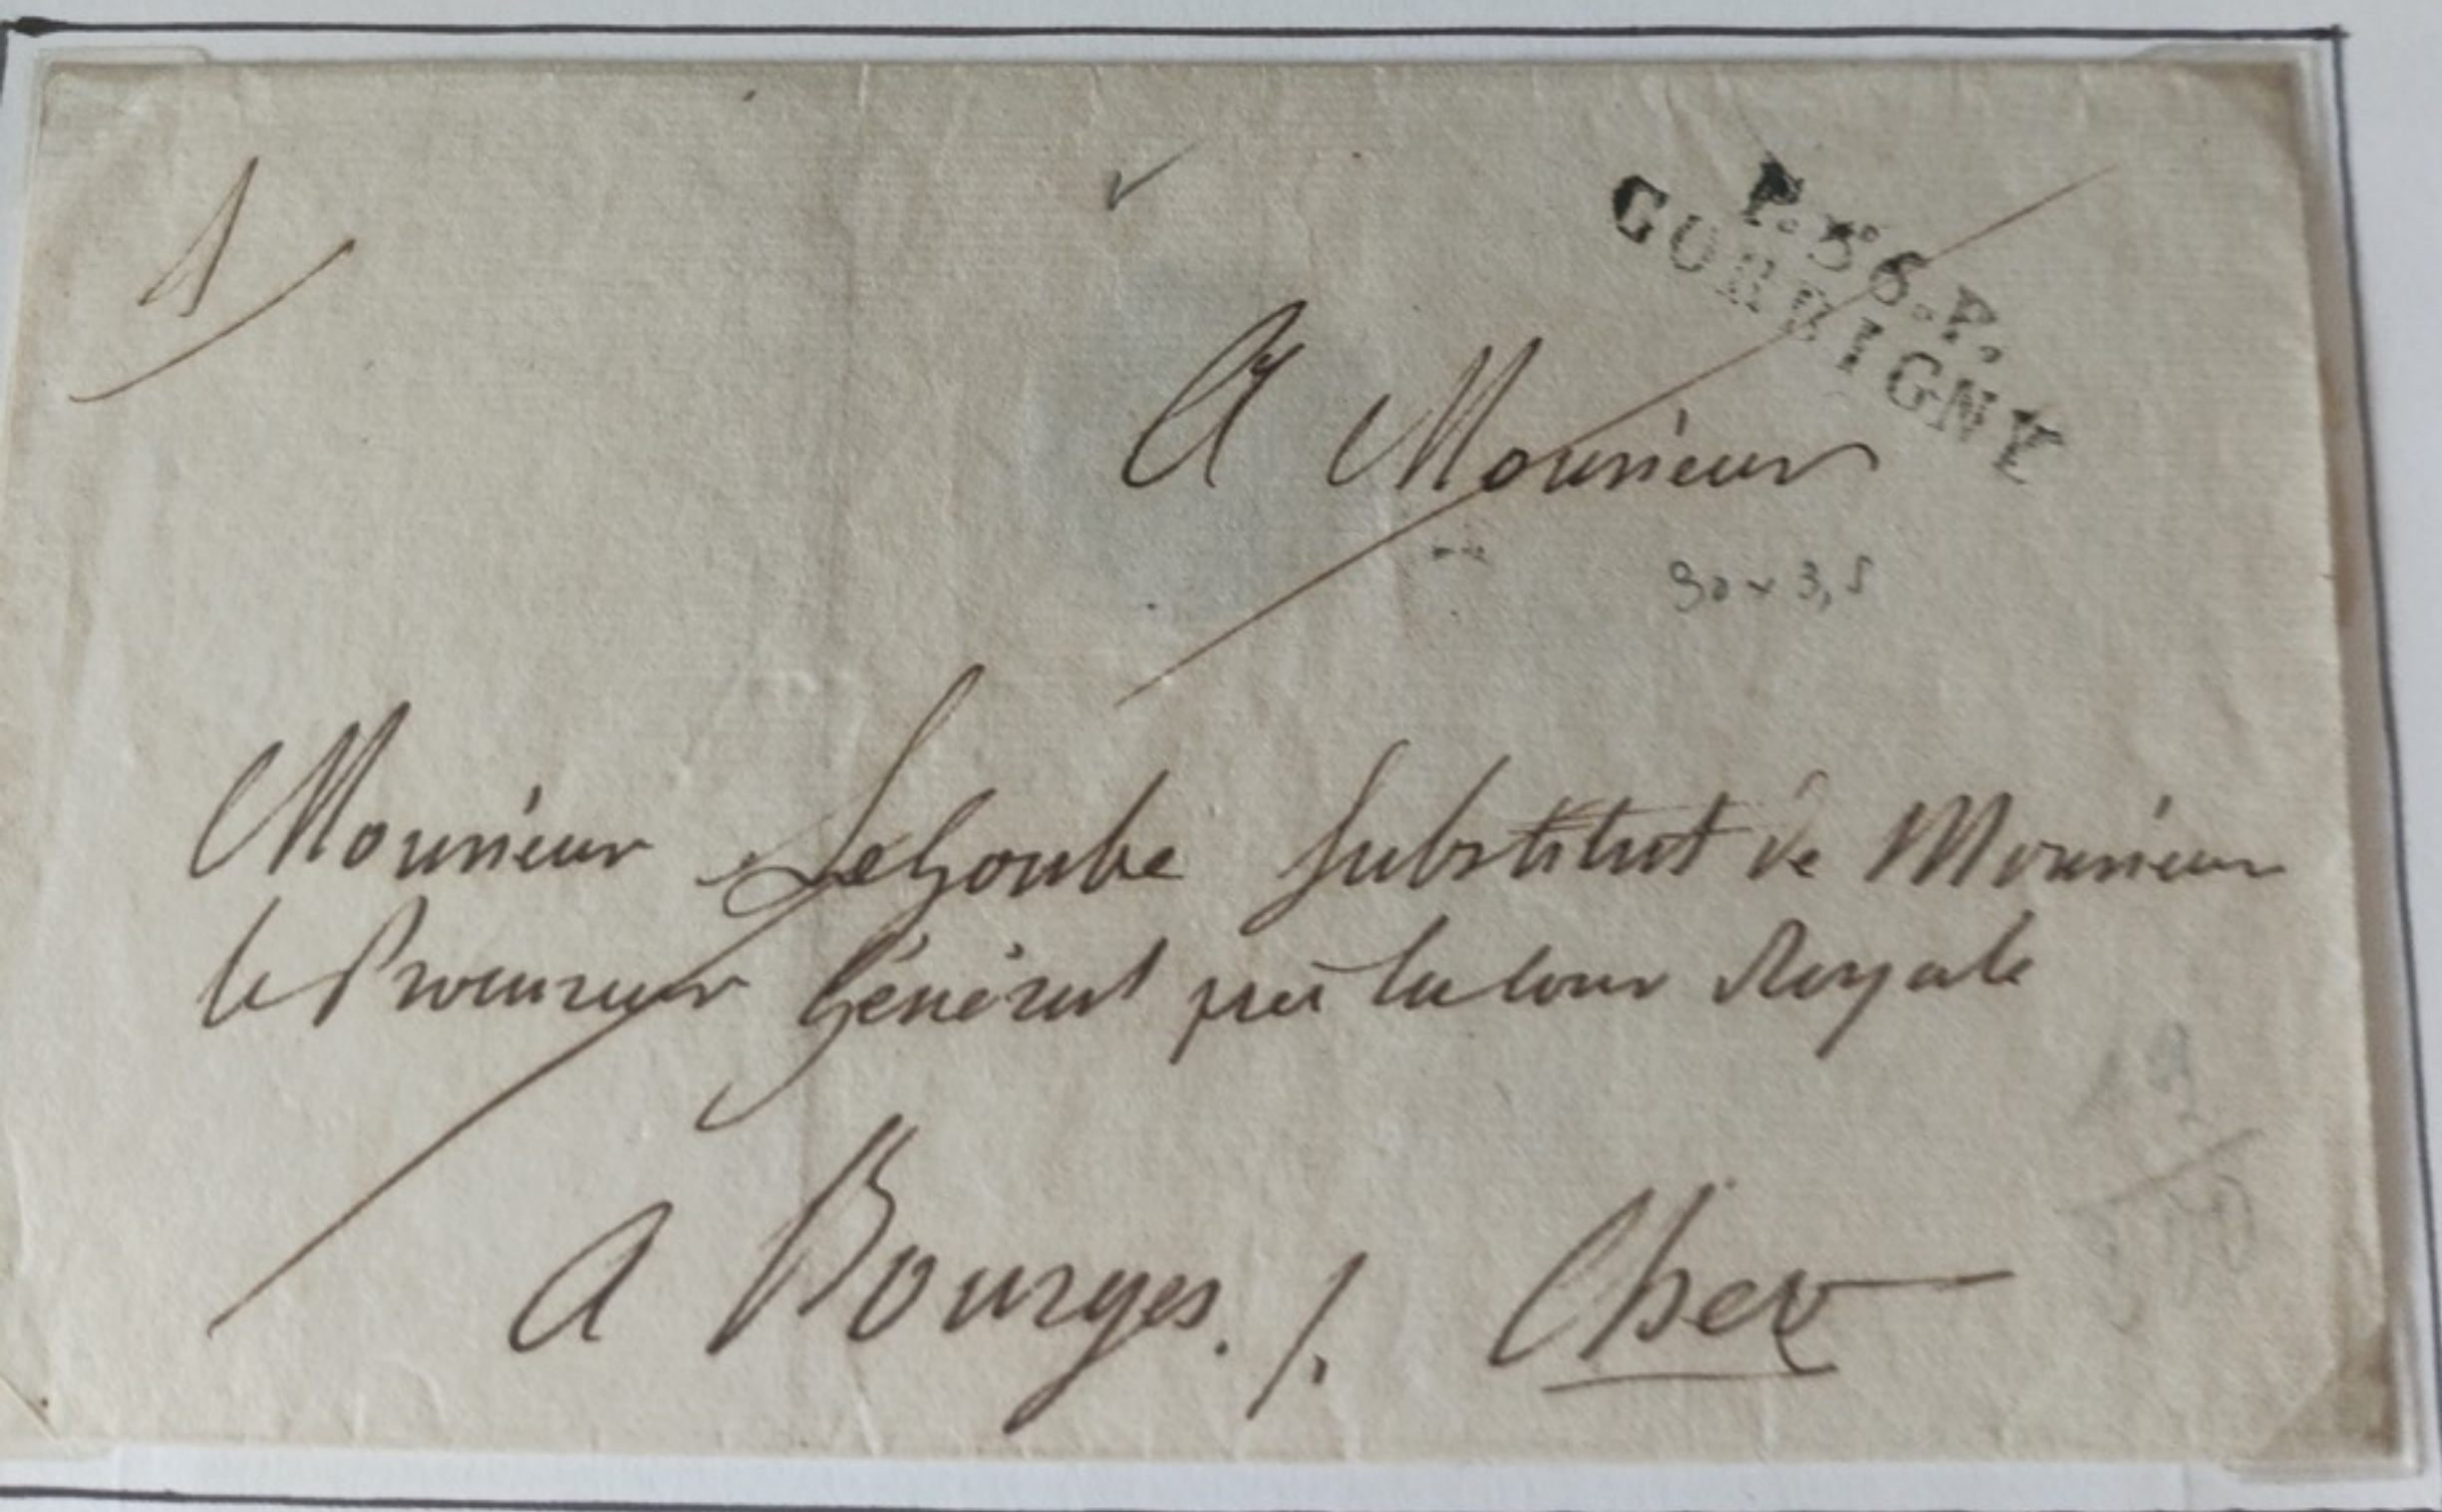 1
P.56.P.
CORBIGNY
A Monsieur
30 x 3,5
Monsieur Substitut de Monsieur
le Procureur Général près la Cour Royale
A Bourges. /. Cher